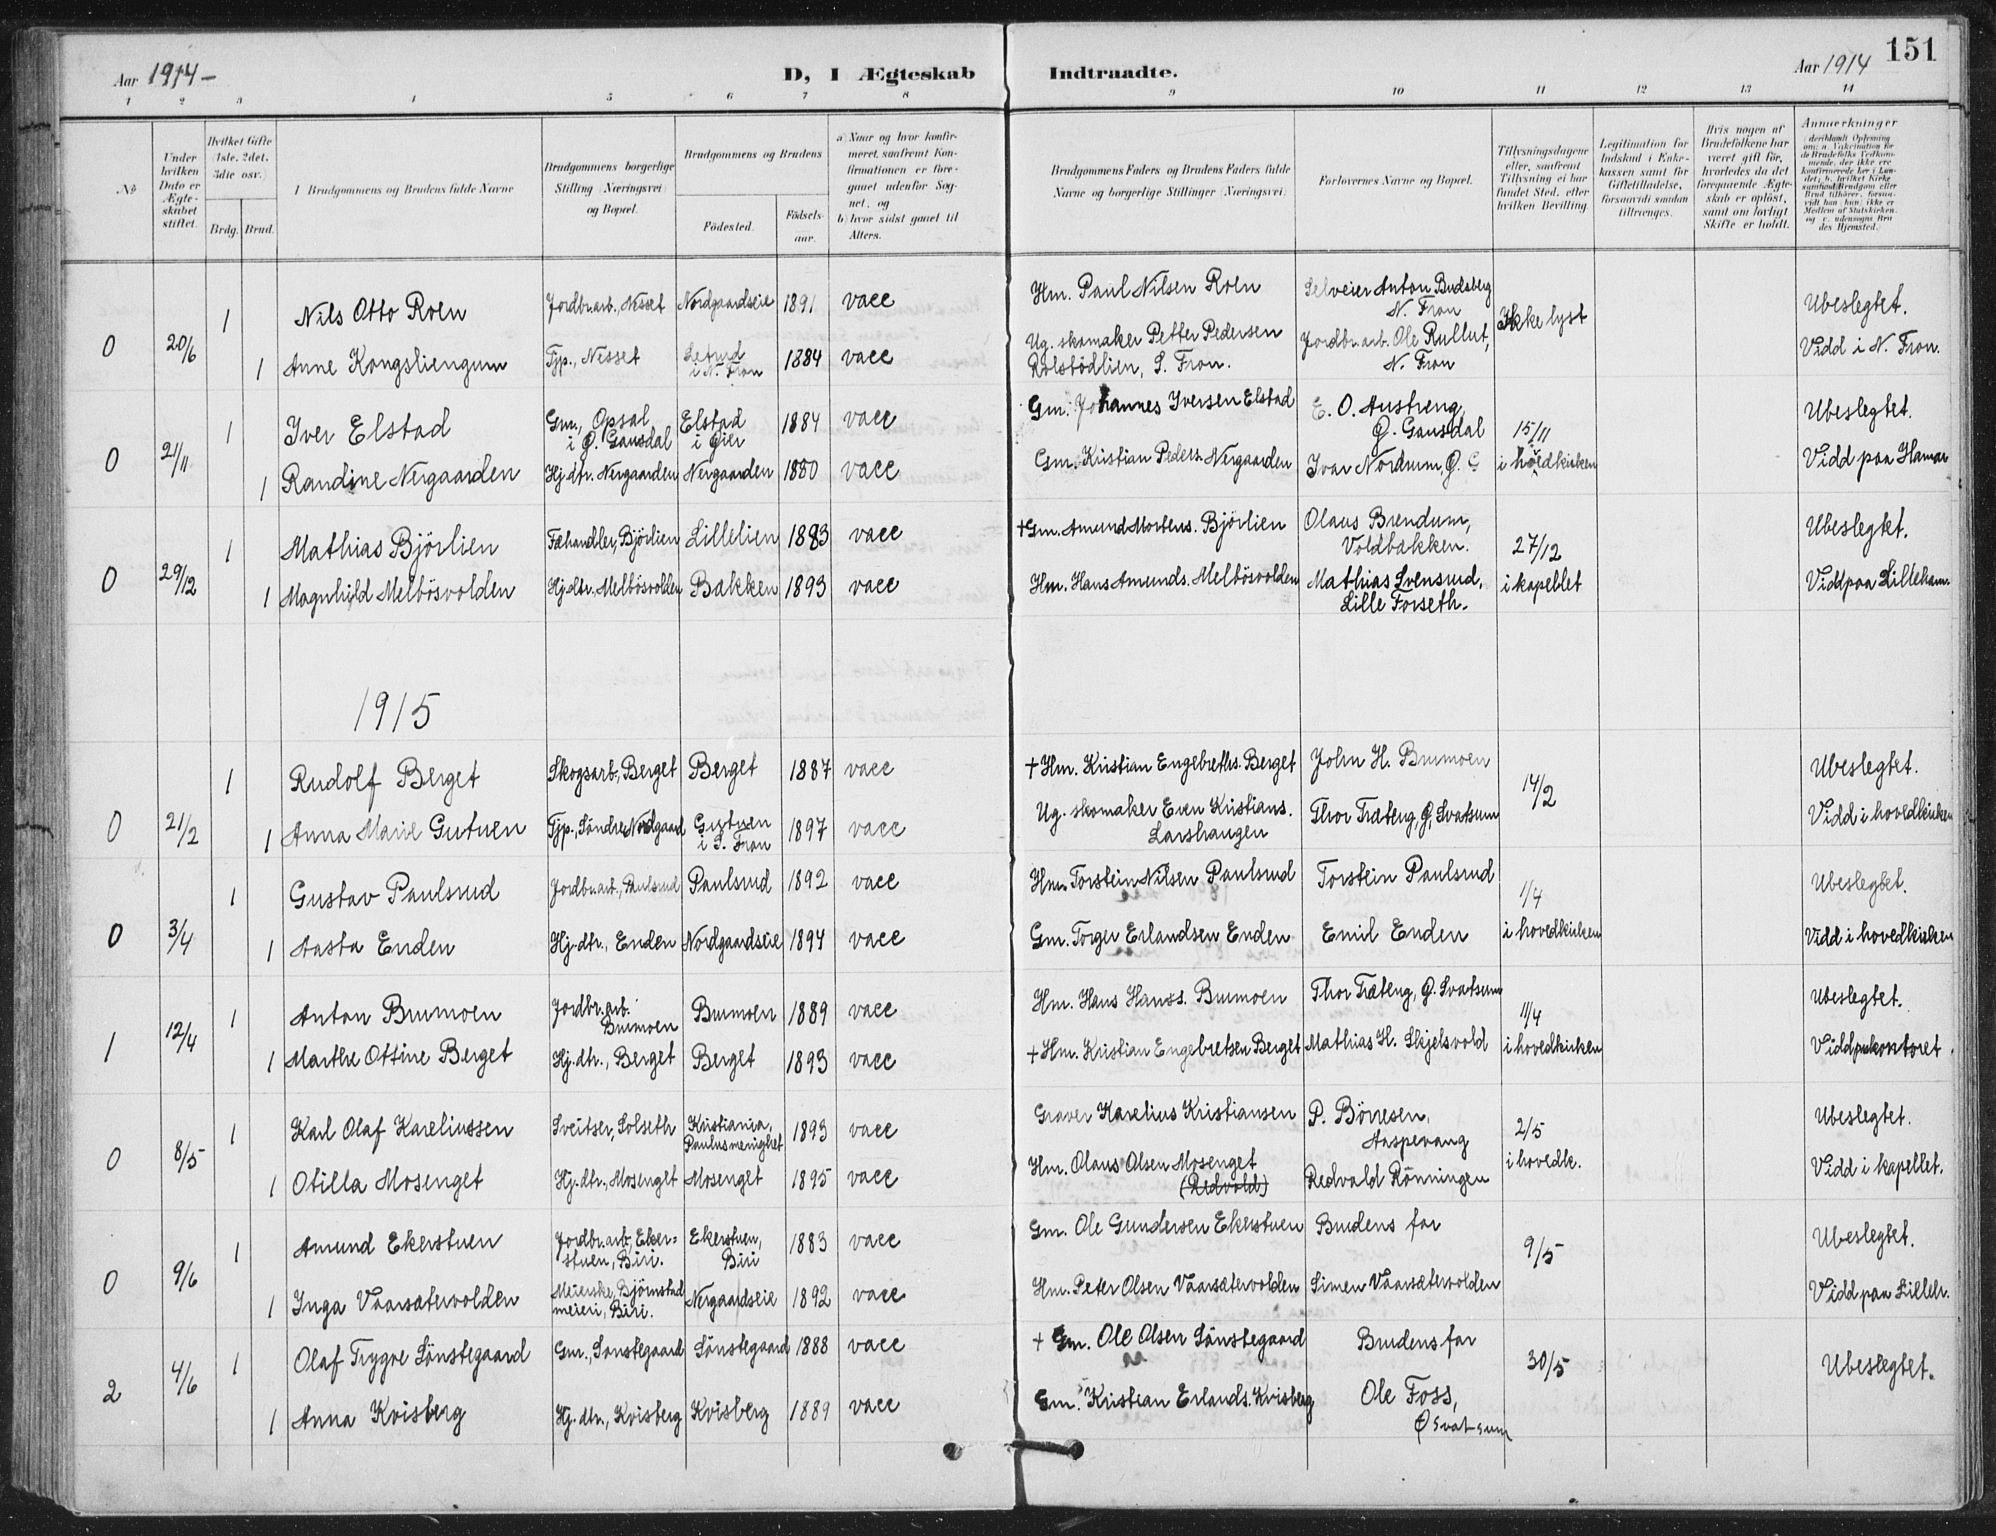 Aar 1914 –
D, I Ægteskab
Indtraadte.
Aar 1914
151
1 2 3 4 5 6 7 8
9 10 11 12 13 14
No
Under hvilken Dato er Ægteskabet stiftet.
Hvilket Gifte (1ste, 2det, 3die osv.)
Brdg. Brud.
Brudgommens og Brudens fulde Navne
Brudgommens borgerlige Stilling (Næringsvei) og Bopæl.
Brudgommens og Brudens
Fødested.
Fødselsaar.
a) Naar og hvor konfirmeret, saafremt Konfirmationen er foregaaet udenfor Sognet, og
b) hvor sidst gaaet til Alters.
Brudgommens Faders og Brudens Faders fulde Navne og borgerlige Stillinger (Næringsvei)
Forlovernes Navne og Bopæl.
Tillysningsdagene eller, saafremt Tillysning ei har fundet Sted, efter hvilken Bevilling
Legitimation for Indskud i Enkekassen samt for Giftetilladelse, forsaavidt saadan tiltrænges.
Hvis nogen af Brudefolkene har været gift før, hvorledes da det foregaaende Ægteskab er opløst, samt om lovligt Skifte er holdt.
Anmærkninger
1 Nils Otto Roen Jordbr.arb., Nisset Nordgaardseie 1891 vacc Hm. Paul Nilsen Roen Selveier Anton Budsberg Ubeslegtet.
N. Fron
0 20/6 Ikke lyst
1 Anne Kongsliengum Tjp., Nisset i N. Fron 1884 vacc Ug. skomaker Petter Pedersen Jordbr.arb. Ole Rullut, Vidd i N. Fron.
Rolstödlien, S. Fron. N. Fron
1 Iver Elstad Gm., Opsal Elstad 1884 vacc Gm. Johannes Iversen Elstad E. O. Austreng, Ubeslegtet.
i Ø. Gausdal i Øier Ø. Gausdal
0 21/11 15/11
1 Randine Nergaarden Hj.dtr. Nergaarden Nergaarden 1880 vacc Gm. Kristian Peders. Nergaarden Ivar Nordrum, Ø. G i hovedkirken Vidd paa Hamar
1 Mathias Björlien Fæhandler, Björlien Lillelien 1883 vacc + Gm. Amund Mortens. Björlien Olaus Brendum, Ubeslegtet.
Voldbakken.
0 29/12 27/12
1 Magnhild Melbösvolden Hj.dtr. Melbösvolden Bakken 1893 vacc Hm. Hans Amunds. Melbösvolden Mathias Svensrud, i kapellet Vidd paa Lilleham.
Lille Forseth.
1915
1 Rudolf Berget Skogsarb., Berget Berget 1887 vacc + Hm. Kristian Engebreths. Berget John H. Brumoen Ubeslegtet.
0 21/2 14/2
1 Anna Marie Gutuen Tjp., Söndre Nordgaard Gutuen 1897 vacc Ug. skomaker Even Kristians. Thor Træteng, Ø. Svatsum Vidd i hovedkirken
i S. Fron Larshaugen
1 Gustav Paulsrud Jordbr.arb., Paulsrud Paulsrud 1892 vacc Hm. Torstein Nilsen Paulsrud Torstein Paulsrud Ubeslegtet.
0 3/4 1/4
1 Aasta Enden Hj.dtr., Enden Nordgaardseie 1894 vacc Gm. Torger Erlandsen Enden Emil Enden i hovedkirken Vidd i hovedkirken
1 Anton Brumoen Jordbr.arb. Brumoen Brumoen 1889 vacc Hm. Hans Hanss. Brumoen Thor Træteng, Ø. Svatsum Ubeslegtet.
1 12/4 11/4
1 Marthe Ottine Berget Hj.dtr., Berget Berget 1893 vacc + Hm. Kristian Engebretsen Berget Mathias H. Skjelsvold i hovedkirken Vidd paa kontoret
1 Karl Olaf Kareliussen Sveitser, Solseth Kristiania, Paulusmenighet 1893 vacc Graver Karelius Kristiansen P. Börresen, Aaspevang Ubeslegtet.
0 8/5 2/5 i hovedk.
1 Otilla Mosenget Hj.dtr., Mosenget Mosenget 1895 vacc Hm. Olaus Olsen Mosenget (Redvold) Redvald Rönningen Vidd i kapellet.
1 Amund Ekerstuen Jordbr.arb., Eker=stuen, Biri. Ekerstuen, Biri 1883 vacc Gm. Ole Gundersen Ekerstuen Brudens far Ubeslegtet.
0 9/6 9/5
1 Inga Vaarsætervolden Meierske, Björnstad meieri, Biri. Nergaardseie 1892 vacc Hm. Peter Olsen Vaarsætervolden Simen Vaarsætervolden Vidd paa Lilleh.
1 Olaf Trygve Sönstegaard Gm., Sönstegaard Sönstegaard 1888 vacc + Gm. Ole Olsen Sönstegaard Brudens far
2 4/6 30/5 Ubeslegtet.
1 Anna Kvisberg Hj.dtr., Kvisberg Kvisberg 1889 vacc Gm. Kristian Erlands. Kvisberg Ole Foss,
Ø Svatsum